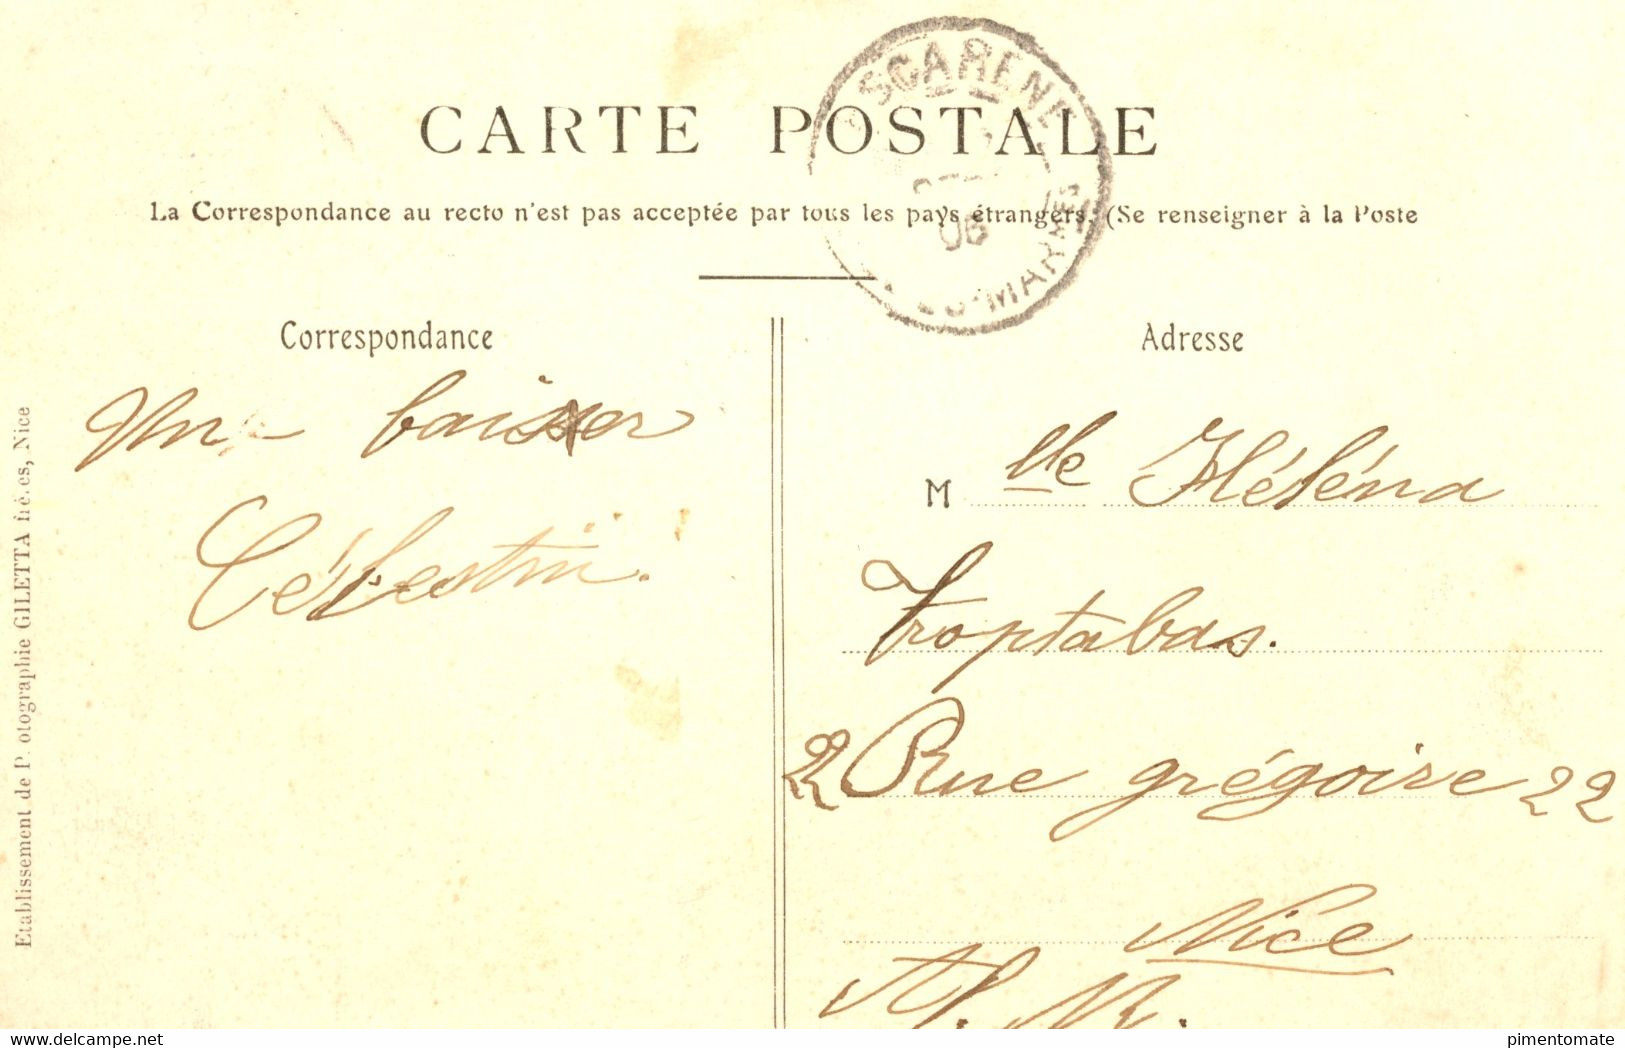 CARTE POSTALE
SCARENE
06
MARMES
La Correspondance au recto n'est pas acceptée par tous les pays étrangers. (Se renseigner à la Poste
Correspondance
Adresse
Un baisser
Célestin.
M lle Héléna
Troptabas.
2 Rue grégoire 22
Nice
A. M.
Etablissement de Photographie GILETTA frères, Nice
delcampe.net
pimentomate